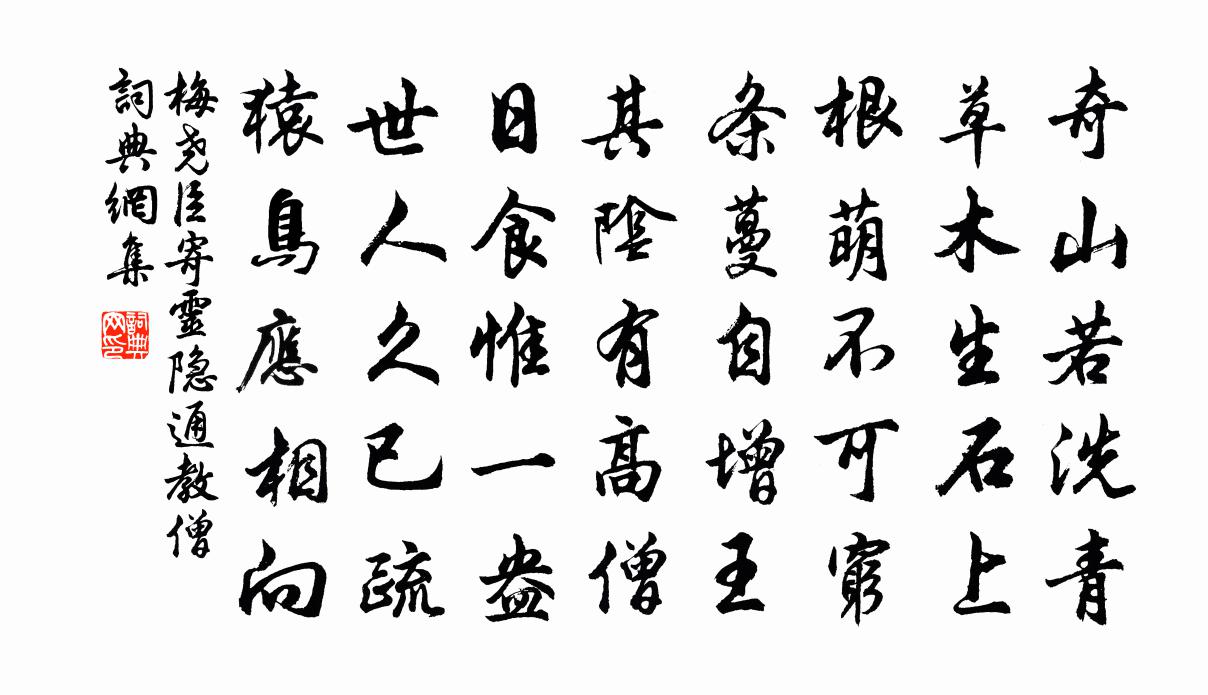 奇山若洗青
草木生石上
根萌不可窮
条蔓自增王
其陰有高僧
日食惟一盎
世人久已疏
猿鳥應相向
梅尧臣寄靈隐通教僧
詞典網集
詞典
网印